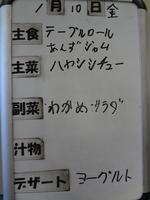 1月10日(金)
主食 テーブルロール
あんずジャム
主菜 ハヤシシチュー
副菜 わかめサラダ
汁物
デザート ヨーグルト